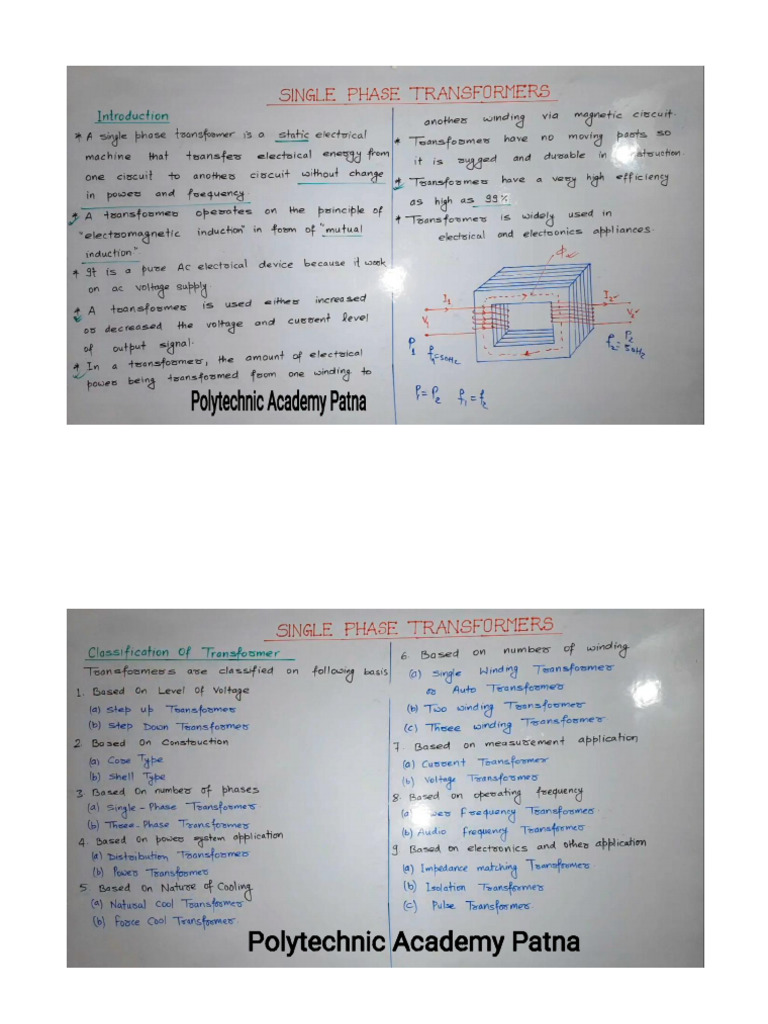 SINGLE PHASE TRANSFORMERS
Introduction
* A single phase transformer is a static electrical
machine that transfer electrical energy from
one circuit to another circuit without change
in power and frequency.
* A transformer operates on the principle of
"electromagnetic induction" in form of "mutual
induction"
* It is a pure Ac electrical device because it work
on ac voltage supply.
* A transformer is used either increased
or decreased the voltage and current level
of output signal.
* In a transformer, the amount of electrical
power being transformed from one winding to
another winding via magnetic circuit.
* Transformer have no moving parts so
it is rugged and durable in construction.
* Transformer have a very high efficiency
as high as 99%
* Transformer is widely used in
electrical and electronics appliances.
Φ
I₁
I₂
V₁
V₂
P₁
f₁=50Hz
P₂
f₂=50Hz
P₁=P₂ f₁=f₂
Polytechnic Academy Patna
SINGLE PHASE TRANSFORMERS
Classification Of Transformer
Transformers are classified on following basis
1. Based On Level Of Voltage
(a) Step up Transformer
(b) Step Down Transformer
2 Based On Construction
(a) Core Type
(b) Shell Type
3. Based On number of phases
(a) Single-Phase Transformer
(b) Three-Phase Transformer
4. Based on power system application
(a) Distribution Transformer
(b) Power Transformer
5. Based On Nature of Cooling
(a) Natural Cool Transformer
(b) Force Cool Transformer.
6. Based on number of winding
(a) Single Winding Transformer
or Auto Transformer
(b) Two winding Transformer
(c) Three winding Transformer
7. Based on measurement application
(a) Current Transformer
(b) Voltage Transformer
8. Based on operating frequency
(a) Power Frequency Transformer.
(b) Audio frequency Transformer
9. Based on electronics and other application
(a) Impedance matching Transformer.
(b) Isolation Transformer
(c) Pulse Transformer.
Polytechnic Academy Patna